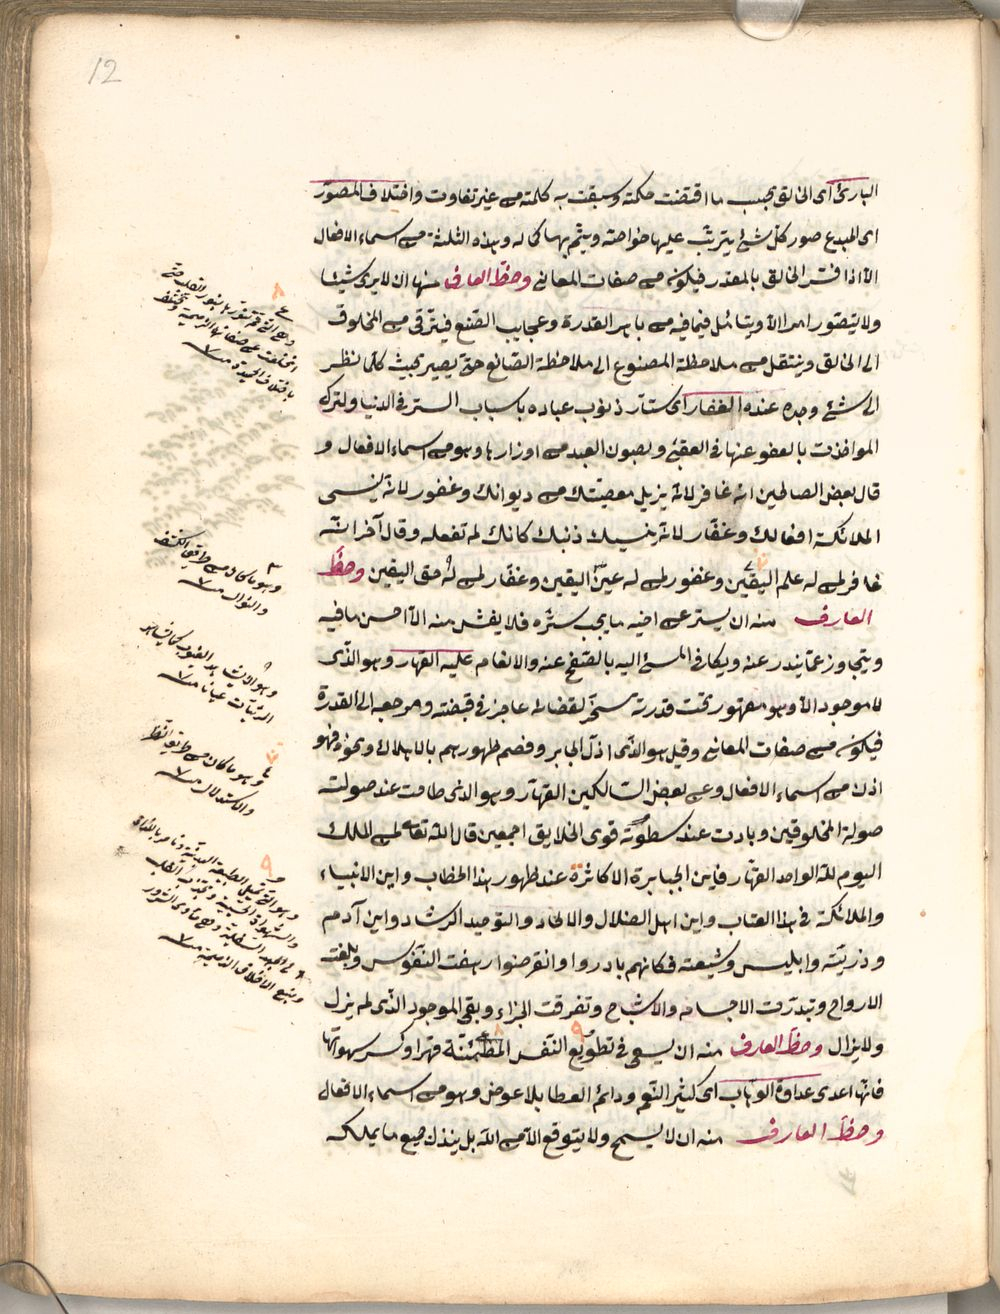 12
البارئ اى الخالق بحسب ما اقتضت حكمته وسبقت به كلمته من غير تفاوت واختلاف المصوّر
اى المبدع صور كلّ شئ يترتب عليها خواصّه ويتمّ بها كماله وبهذه الثلثة من اسماء الافعال
الا اذا فسّر الخالق بالمقدر فيكون من صفات المعانى وحظّ العارف منها ان لا يرى شيئا
ولا يتصوّر امرا الا ويتأمل فيما فيه من باهر القدرة وعجايب الصّنع فيترقى من المخلوق
الى الخالق وينتقل من ملاحظة المصنوع الى ملاحظة الصّانع حتى يصير بحيث كلّما نظر
الى شئ وجده عنده الغفار اى ستّار ذنوب عباده باسباب الستر فى الدنيا ولترك
المواخذت بالعفو عنها فى العقبى ولصون العبد من اوزارها وهو من اسماء الافعال و
قال بعض الصالحين انه غافر لانّه يزيل معصيتك من ديوانك وغفور لانّه ينسى
الملائكة افعالك وغفّار لانّه ينسيك ذنبك كانك لم تفعله وقال آخر انّه
غافر لمن له علم اليقين وغفور لمن له عين اليقين وغفّار لمن له حق اليقين وحظّ
العارف منه ان يستر على اخيه ما يحب ستره فلا يفشى منه الا احسن ما فيه
ويتجاوز عمّا يندر عنه ويكافى المسئ اليه بالصّفح عنه والانعام عليه القهار وهو الذى
لا موجود الا وهو مقهور تحت قدرته مسخّر لقضائه عاجز فى قبضته ومرجعه الى القدرة
فيكون من صفات المعانى وقيل هو الذى اذلّ الجبابر وقصم ظهورهم بالاهلاك ونحوه فهو
اذن من اسماء الافعال وعن بعض السّالكين القهّار هو الذى طاحت عند صولته
صولة المخلوقين وبادت عند سطوته قوى الخلايق اجمعين قال الله تعالى لمن الملك
اليوم لله الواحد القهّار فاين الجبابرة الاكاثرة عند ظهور هذا الخطاب واين الانبياء
والملائكة فى هذا العتاب واين اهل الضلال والالحاد والتوحيد الرشاد واين آدم
وذريّته وابليس وشيعته فكانهم بادروا وانقرضوا زهقت النّفوس وبلغت
الارواح وتبدّدت الاجسام والاشباح وتفرقت الاجزاء وبقى الموجود الذى لم يزل
ولا يزال وحظّ العارف منه ان يسعى فى تطويع النّفس المطمئنّة قهرا وكسر شهوتها
فانّها اعدى عداوة الوهّاب اى كثير النّعم ودائم العطا بلا عوض وهو من اسماء الافعال
وحظّ العارف منه ان لا يسمح ولا يتوقع الا من الله بل يبذل جميع ما يملك
وهو ما كان من طريق الكشف
والنوال
وهو ما كان من طريق النظر
والاستدلال